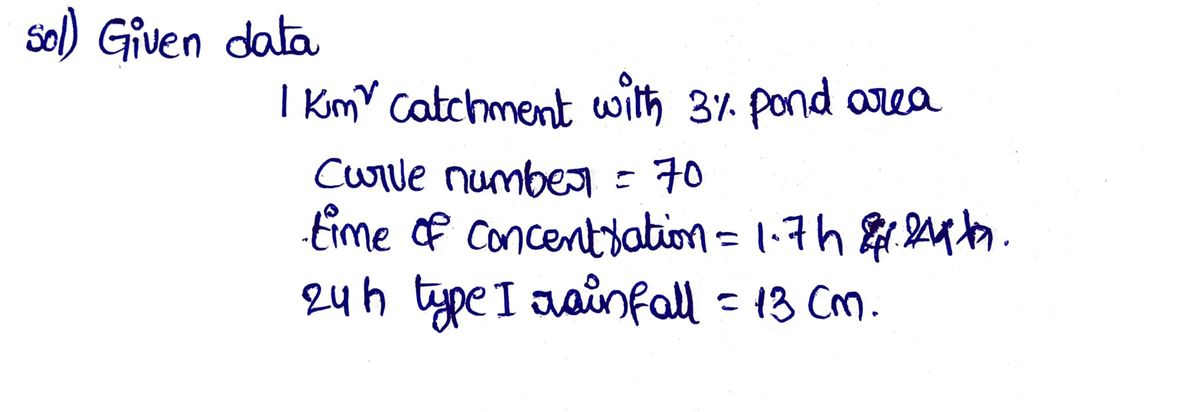 Sol) Given data
1 Km² catchment with 3% pond area
Curve number = 70
time of concentration = 1.7h
24h type I rainfall = 13 cm.